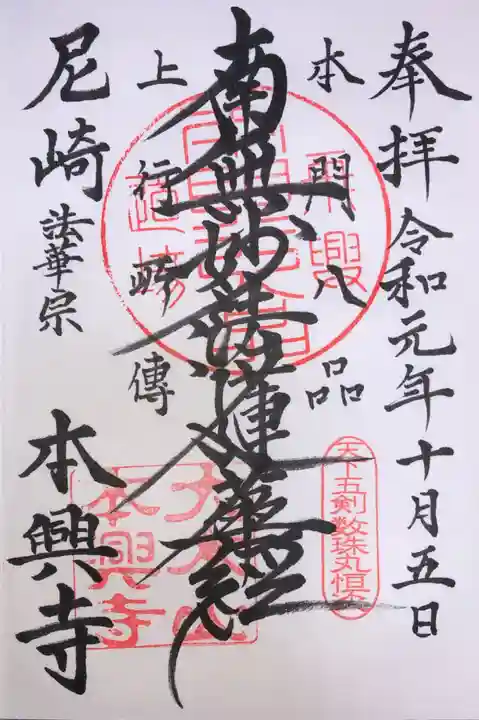 奉拝 令和元年十月五日
本門八品
南無妙法蓮華経
上行所傳
尼崎 法華宗
本興寺
天下五剣数珠丸恒次
大本山
本興寺